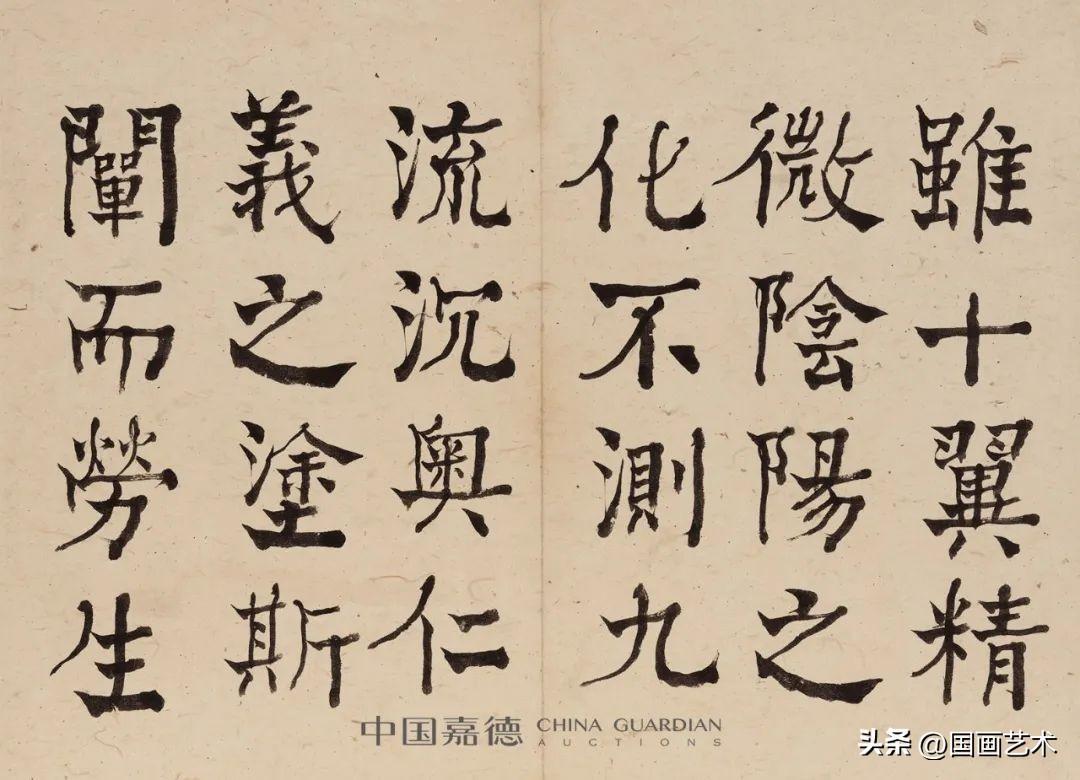 雖十翼精
微陰陽之
化不測九
流沉奧仁
義之塗斯
闡而勞生
中国嘉德 CHINA GUARDIAN
AUCTIONS
头条 @国画艺术